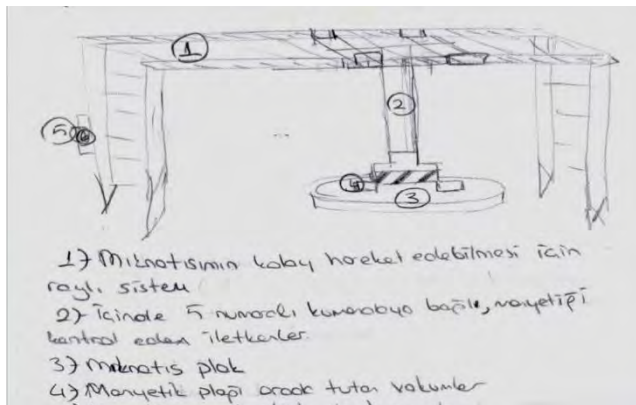 1
2
5
4
3
1) Mıknatısının kolay hareket edebilmesi için
raylı sistem
2) İçinde 5 numaralı kumandaya bağlı, manyetiği
kontrol eden iletkenler.
3) Mıknatıs plak
4) Manyetik plağı arada tutan vakumlar